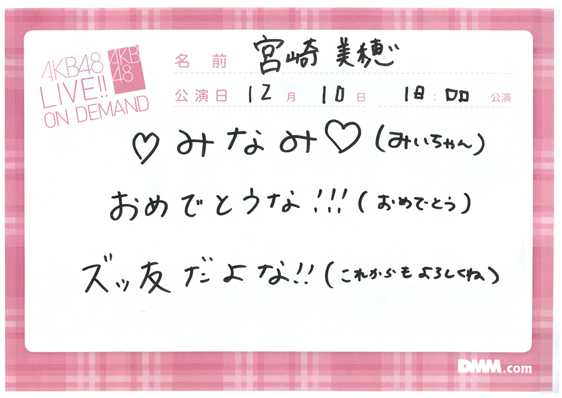 AKB48
LIVE!!
ON DEMAND
AKB
48
名 前 宮崎 美穂
公演日 12 月 10 日 18:00 公演
♡みなみ♡(みいちゃん)
おめでとうな!!!(おめでとう)
ズッ友だよな!!(これからもよろしくね)
DMM.com